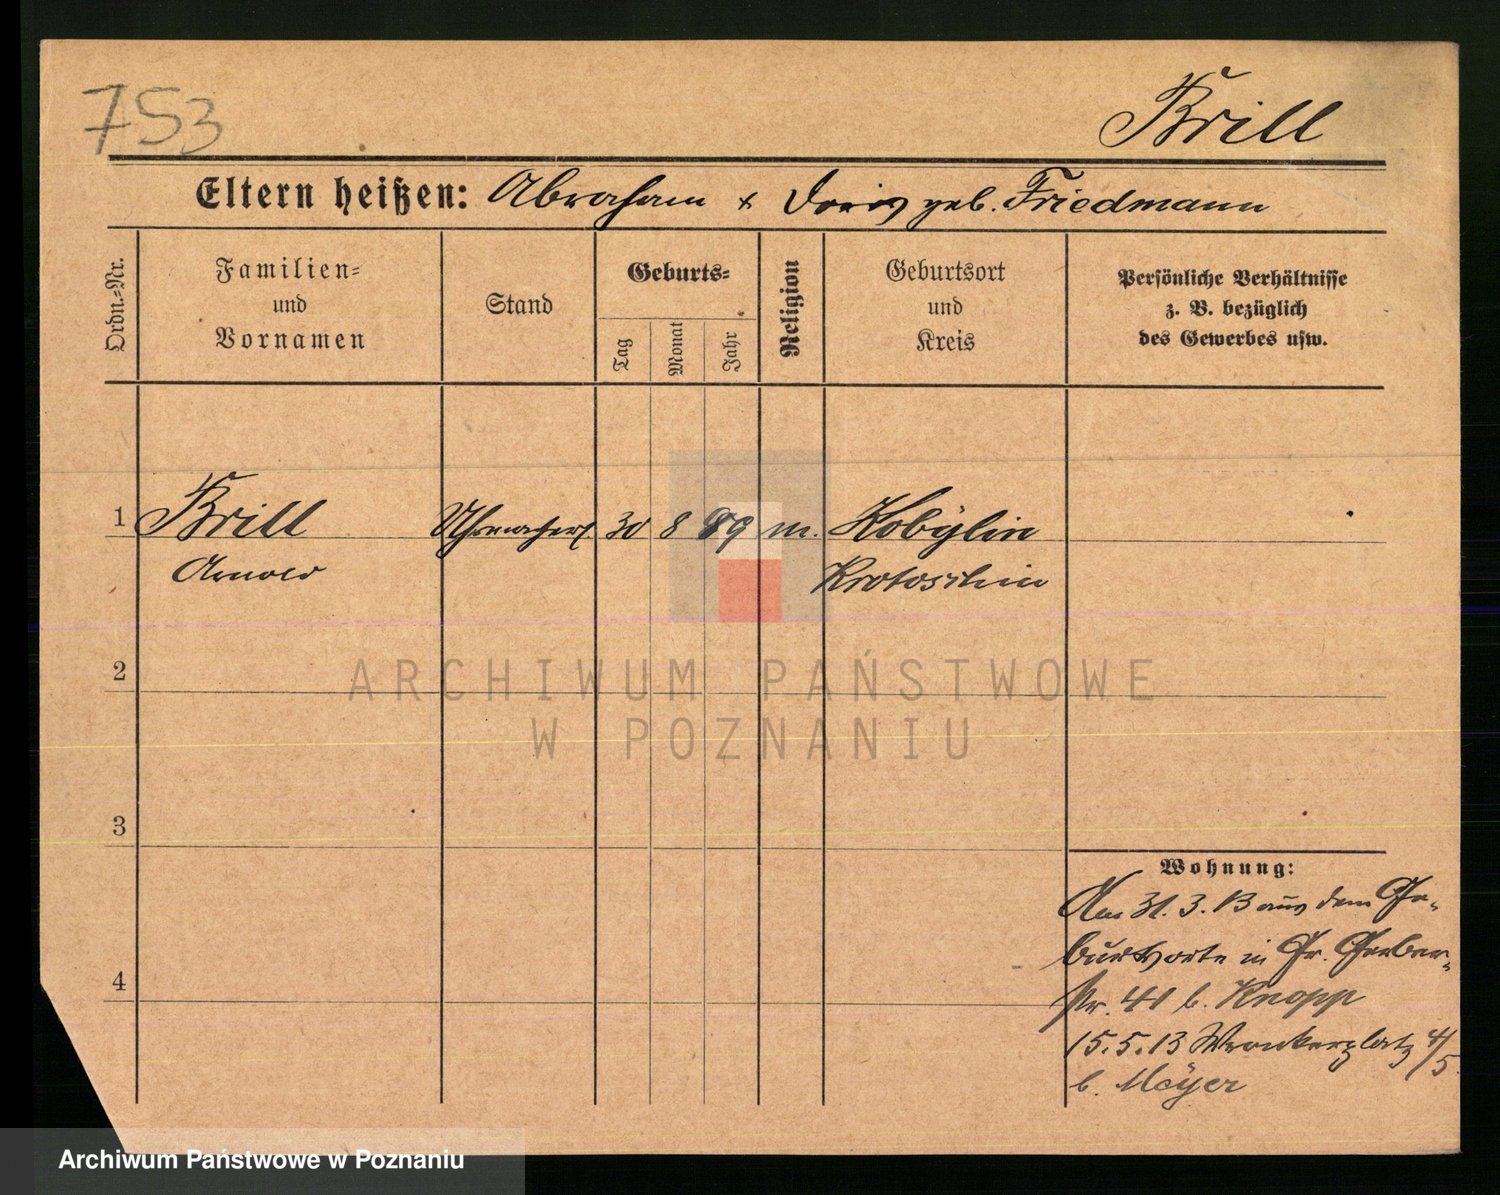 753
Brill
Eltern heißen: Abraham & Doris geb. Friedmann
Ordn.-Nr.
Familien-
und
Vornamen
Stand
Geburts-
Tag
Monat
Jahr
Religion
Geburtsort
und
Kreis
Persönliche Verhältnisse
z. B. bezüglich
des Gewerbes usw.
1 Brill Uhrmacher 30 8 89 m. Kobylin
Arnold Krotoschin
2
ARCHIWUM PAŃSTWOWE
W POZNANIU
3
Wohnung:
Am 31. 3. 13 aus dem Ge-
burtsorte in Gr. Gerber-
4
str. 41 b. Knopp
15.5.13 Wronkerplatz 4/5
b. Meyer
Archiwum Państwowe w Poznaniu